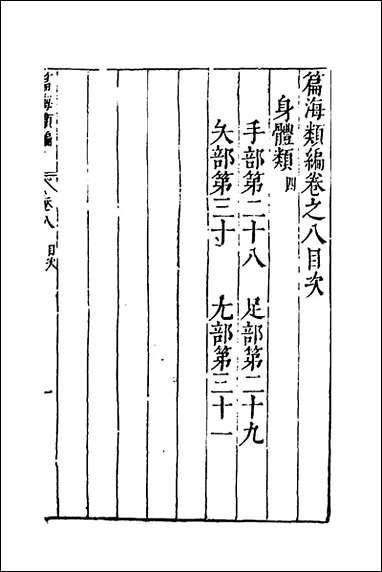 篇海類編卷之八目次
身體類 四
手部第二十八 足部第二十九
夨部第三十 尢部第三十一
篇海類編 卷八 目次 一